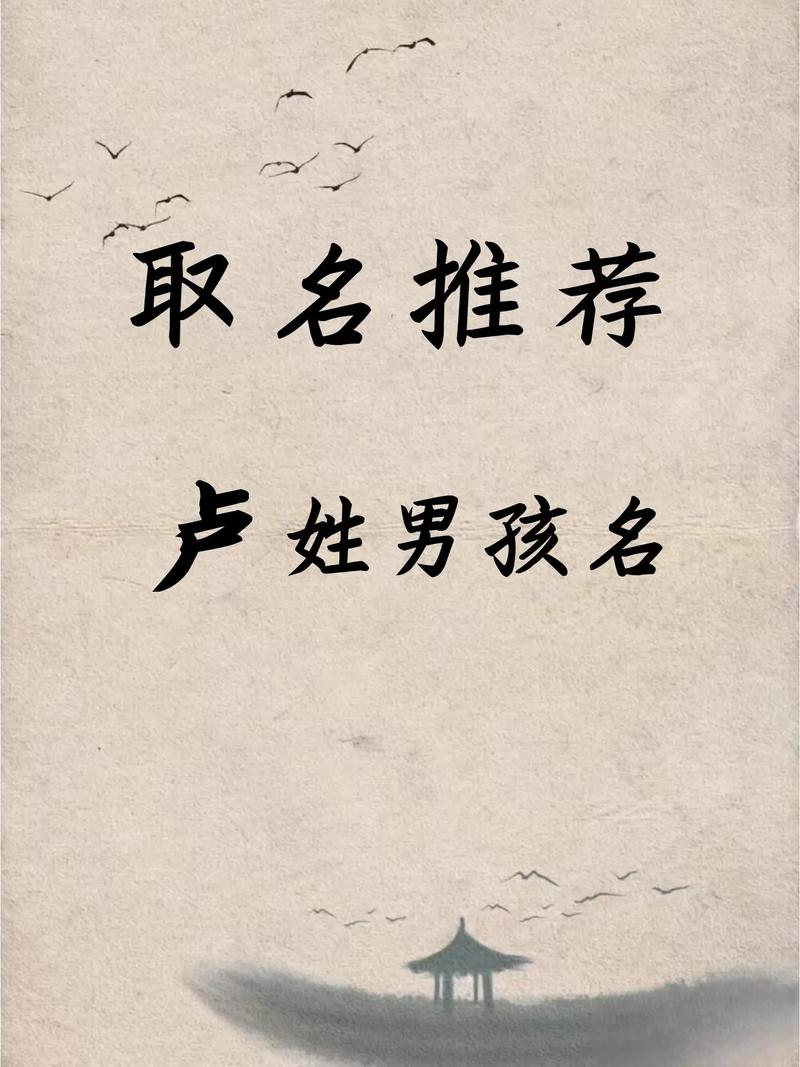 取名推荐
卢姓男孩名